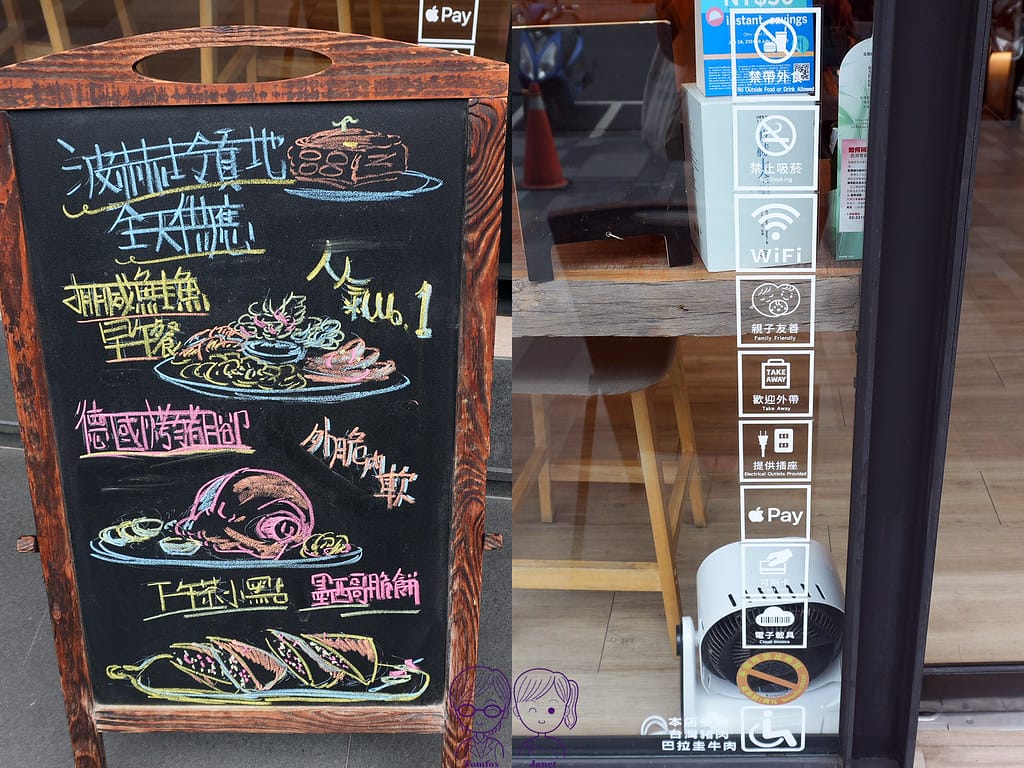 Apple Pay
波赫士領地
全天供應
挪威鮭魚
早午餐
人氣No.1
德國烤豬腳
外脆內軟
下午茶小點
墨西哥脆餅
NT$50
instant savings
禁帶外食
No Outside Food or Drink Allowed
禁止吸菸
No Smoking
WiFi
親子友善
Family Friendly
TAKE
AWAY
歡迎外帶
Take Away
提供插座
Electrical Outlets Provided
Apple Pay
可刷卡
電子載具
Cloud Invoice
本店使用
台灣豬肉
巴拉圭牛肉
如何補
Tomfox
Janet